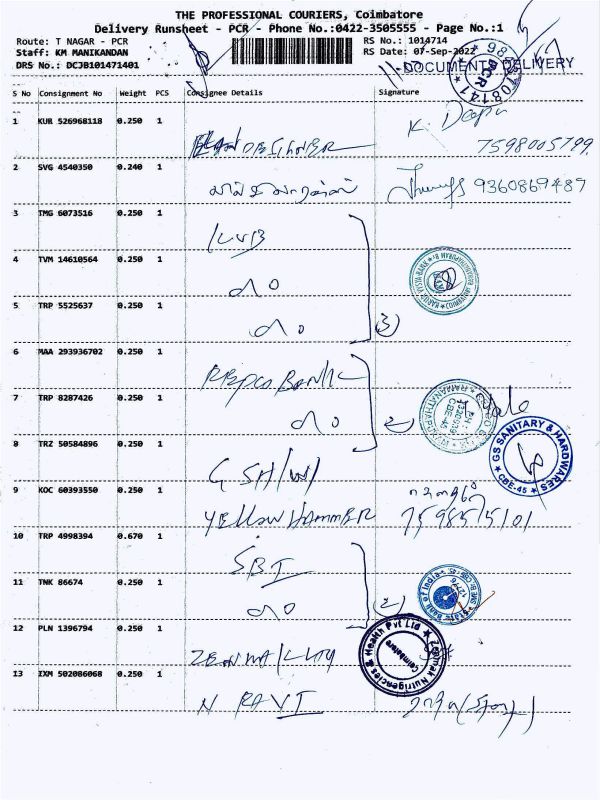 THE PROFESSIONAL COURIERS, Coimbatore
Delivery Runsheet - PCR - Phone No.:0422-3505555 - Page No.:1
Route: T NAGAR - PCR
RS No.: 1014714
Staff: KM MANIKANDAN
RS Date: 07-Sep-2022
DRS No.: DCJB101471401
DOCUMENTS DELIVERY
PCR
S No Consignment No Weight PCS Consignee Details Signature
1 KUR 526968118 0.250 1 K. Deepa
7598005799
2 SVG 4540350 0.240 1 9360869489
3 TMG 6073516 0.250 1 KVB
4 TVM 14610564 0.250 1
5 TRP 5525637 0.250 1 3)
6 MAA 293936702 0.250 1 REPCO BANK
7 TRP 8287426 0.250 1 2)
8 TRZ 50584896 0.250 1 GSH/W
GS SANITARY & HARDWARES
CBE-45
9 KOC 60393550 0.250 1 YELLOW HAMMER
10 TRP 4998394 0.670 1 SBI
11 TNK 86674 0.250 1 (2)
State Bank of India
12 PLN 1396794 0.250 1
Health Pvt Ltd
Coimbatore
13 IXM 502086068 0.250 1 N RAVI